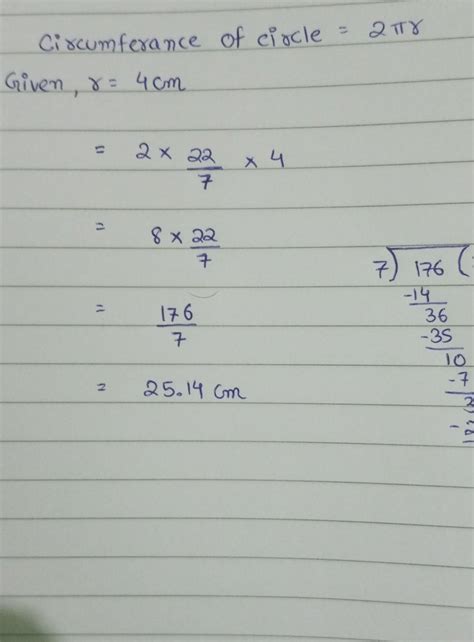 Circumferance of circle = 2πr
Given, r = 4cm
= 2 × 22/7 × 4
= 8 × 22/7
= 176/7
= 25.14 cm
7) 176 (
-14
36
-35
10
-7
3